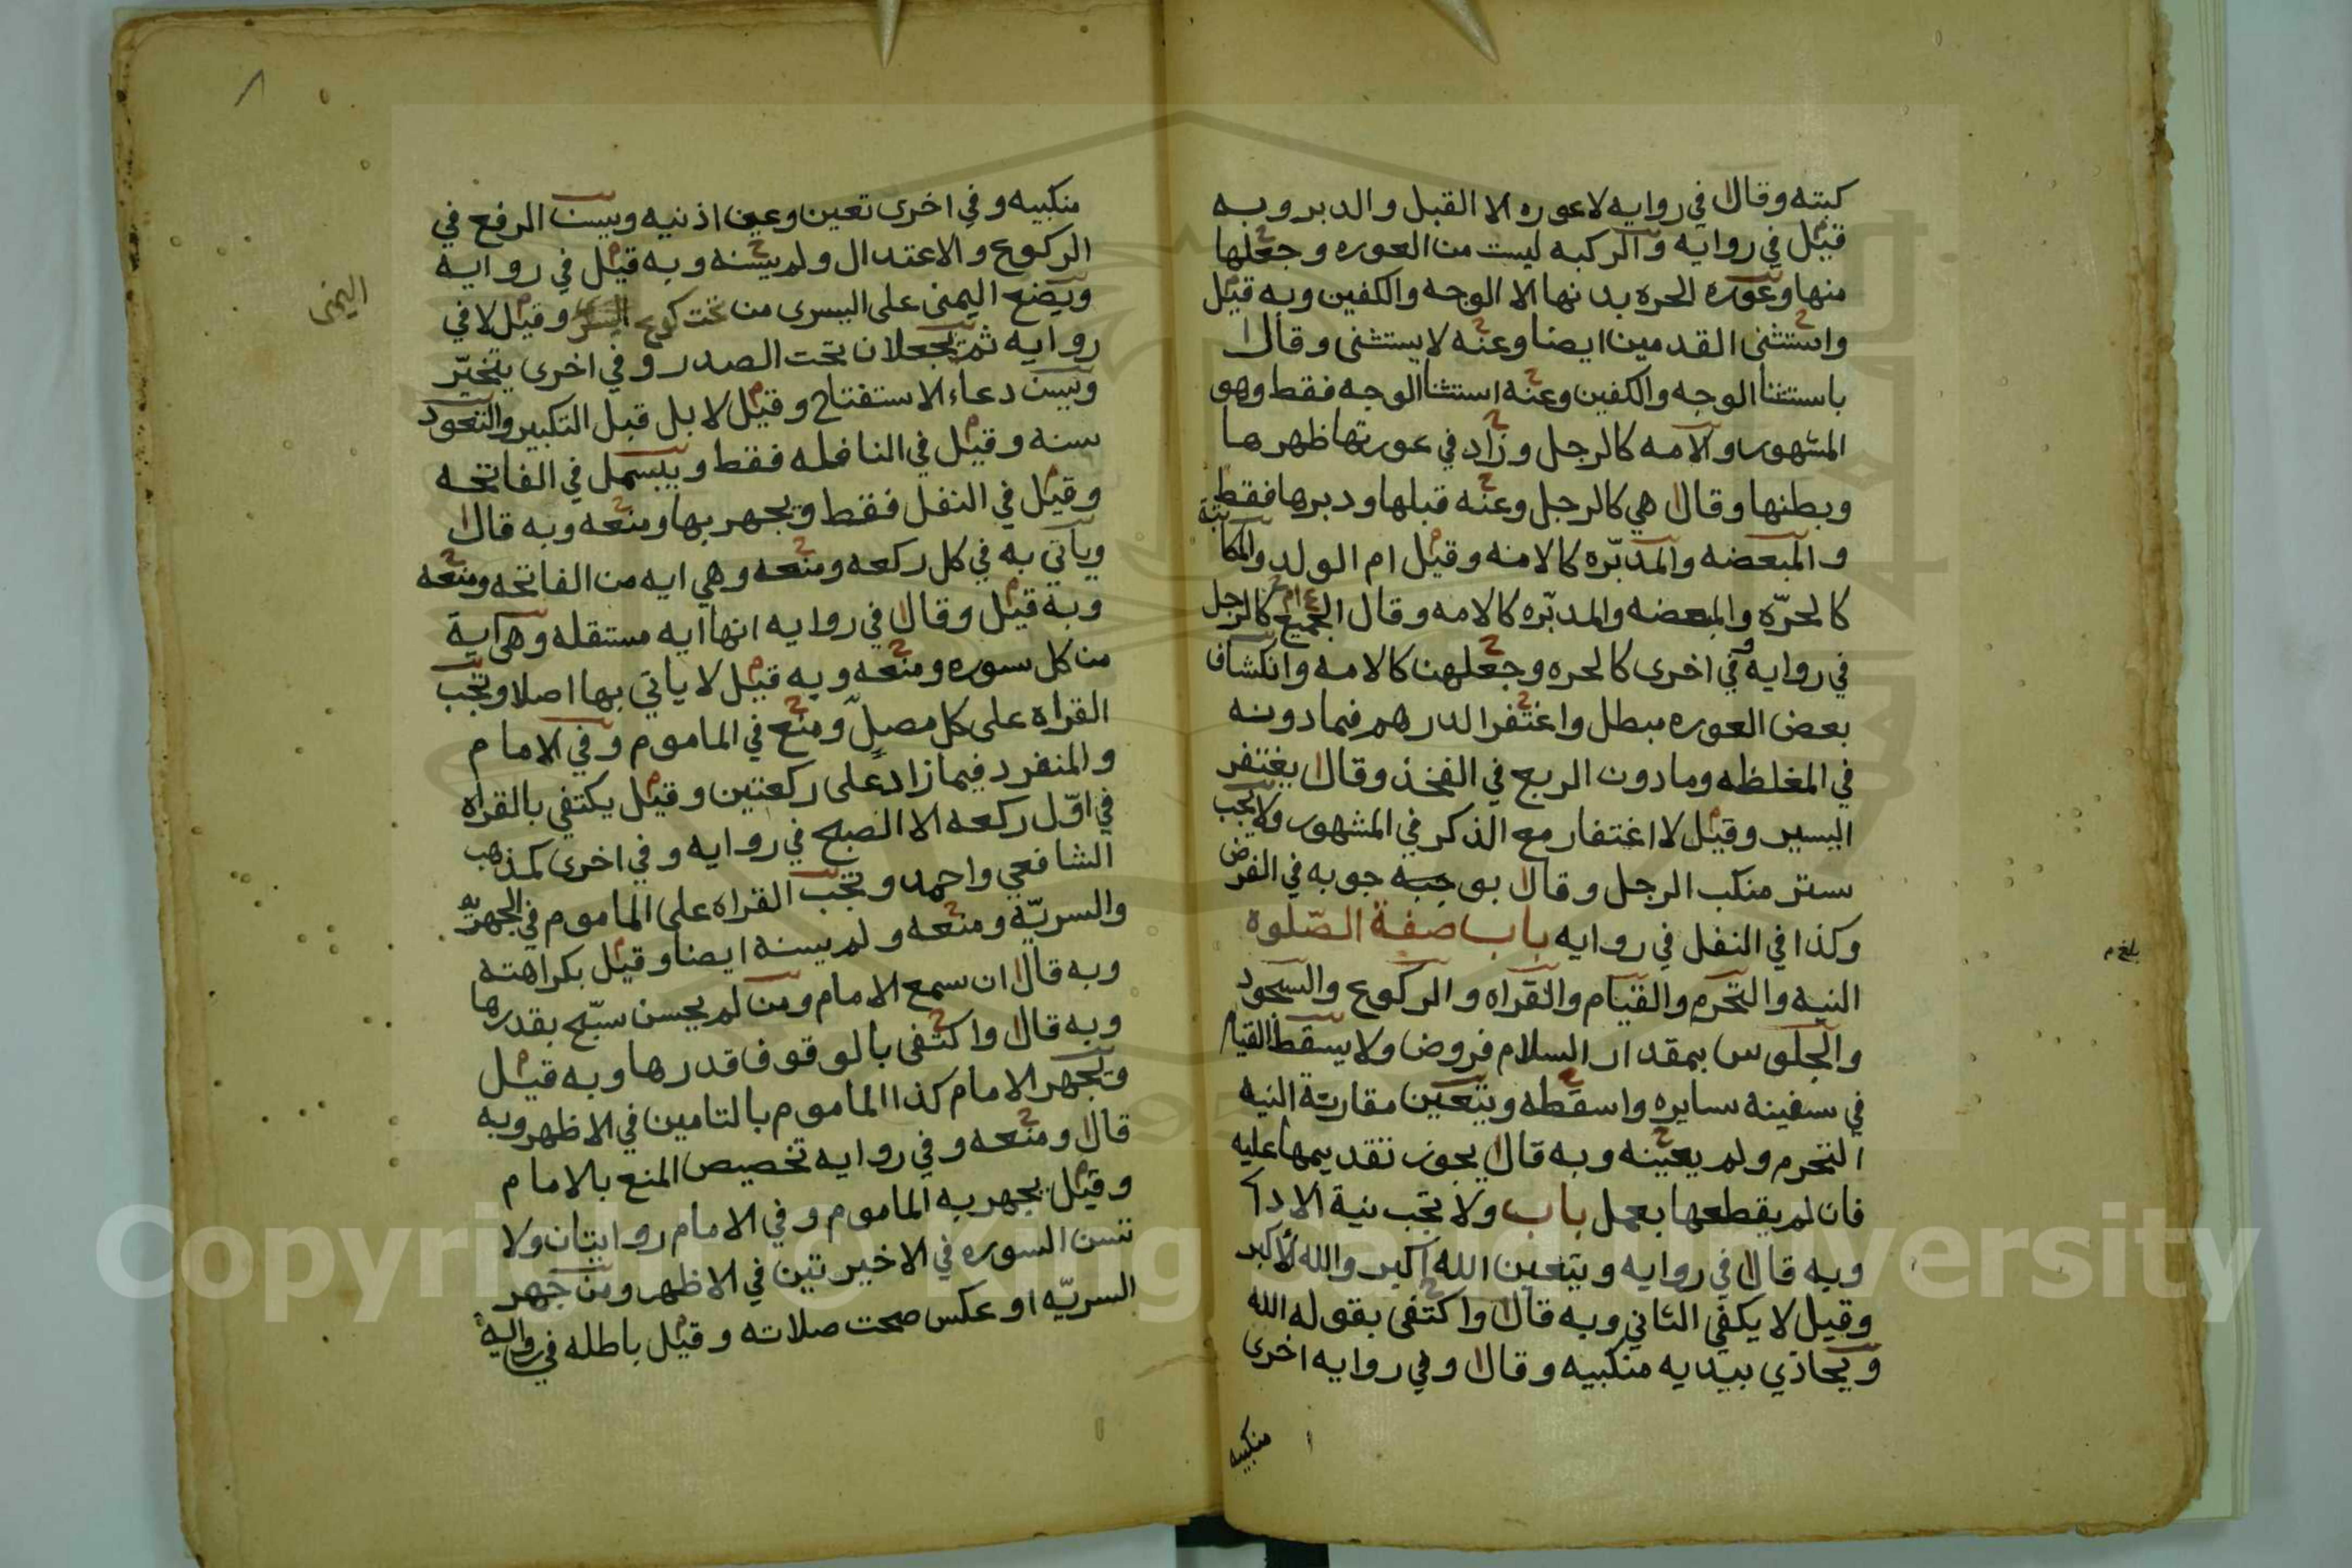 كبته وقال في روايه لا عوره الا القبل والدبر وبه
قيل في روايه والركبه ليست من العوره وجعلها
منها وعوره الحره بدنها الا الوجه والكفين وبه قيل
واستثنى القدمين ايضا وعنه لا يستثنى وقال
باستثنا الوجه والكفين وعنه استثنا الوجه فقط وهو
المشهور والامه كالرجل وزاد في عورتها ظهرها
وبطنها وقال هي كالرجل وعنه قبلها ودبرها فقط
والمبعضه والمدبّره كالامنه وقيل ام الولد والمكاتبة
كالحرّه والمبعضه والمدبّره كالامه وقال الجميع كالرجل
في روايه وفي اخرى كالحره وجعلهن كالامه وانكشاف
بعض العوره مبطل واغتفر الدرهم فمادونه
في المغلظه ومادون الربع في الفخذ وقال يغتفر
اليسير وقيل لا اغتفار مع الذكر في المشهور ولا يجب
ستر منكب الرجل وقال بوجبه جوبه في الفرض
وكذا في النفل في روايه باب صفة الصّلوة
النيه والتحرم والقيام والقراه والركوع والسجود
والجلوس بمقدار السلام فروض ولا يسقط القيام
في سفينه سايره واسقطه ويتعين مقارنة النيه
التحرم ولم يعينه وبه قال يجوز تقديمها عليه
فان لم يقطعها بعمل باب ولا تجب نية الادا
وبه قال في روايه ويتعين الله اكبر والله الاكبر
وقيل لا يكفي الثاني وبه قال واكتفى بقوله الله
ويحاذي بيديه منكبيه وقال وفي روايه اخرى
منكبيه
بلغ م
منكبيه وفي اخرى تعين وعين اذنيه ويسن الرفع في
الركوع والاعتدال ولم يسنه وبه قيل في روايه
ويضع اليمنى على اليسرى من تحت كوع اليسرى وقيل لا في
اليمنى
روايه ثم يجعلان تحت الصدر وفي اخرى يتخيّر
ويسن دعاء الاستفتاح وقيل لا بل قبل التكبير والتعوذ
سنه وقيل في النافله فقط ويبسمل في الفاتحه
وقيل في النفل فقط ويجهر بها ومنعه وبه قال
وياتي به في كل ركعه ومنعه وهي ايه من الفاتحه ومنعه
وبه قيل وقال في روايه انها ايه مستقله وهي اية
من كل سوره ومنعه وبه قيل لا ياتي بها اصلا وتجب
القراه على كل مصلٍّ ومنع في الماموم وفي الامام
والمنفرد فيما زاد على ركعتين وقيل يكتفي بالقراه
في اوّل ركعه الا الصبح في روايه وفي اخرى كمذهب
الشافعي واحمد وتجب القراه على الماموم في الجهريه
والسريّه ومنعه ولم يسنه ايضا وقيل بكراهته
وبه قال ان سمع الامام ومن لم يحسن سبّح بقدرها
وبه قال واكتفى بالوقوف قدرها وبه قيل
ويجهر الامام كذا الماموم بالتامين في الاظهر وبه
قال ومنعه وفي روايه تخصيص المنع بالامام
وقيل يجهر به الماموم وفي الامام روايتان ولا
تسن السوره في الاخيرتين في الاظهر ومن جهر
السريّه او عكس صحت صلاته وقيل باطله في رواية
Copyright © King Saud University